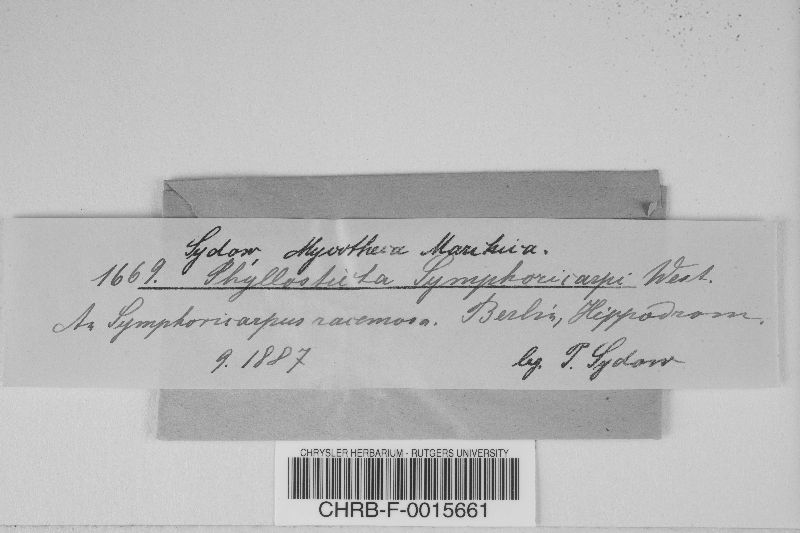 Sydow, Mycotheca Marchica.
1669. Phyllosticta Symphoricarpi West.
An Symphoricarpus racemosa. Berlin, Hippodrom.
9. 1887 leg. P. Sydow
CHRYSLER HERBARIUM - RUTGERS UNIVERSITY
CHRB-F-0015661